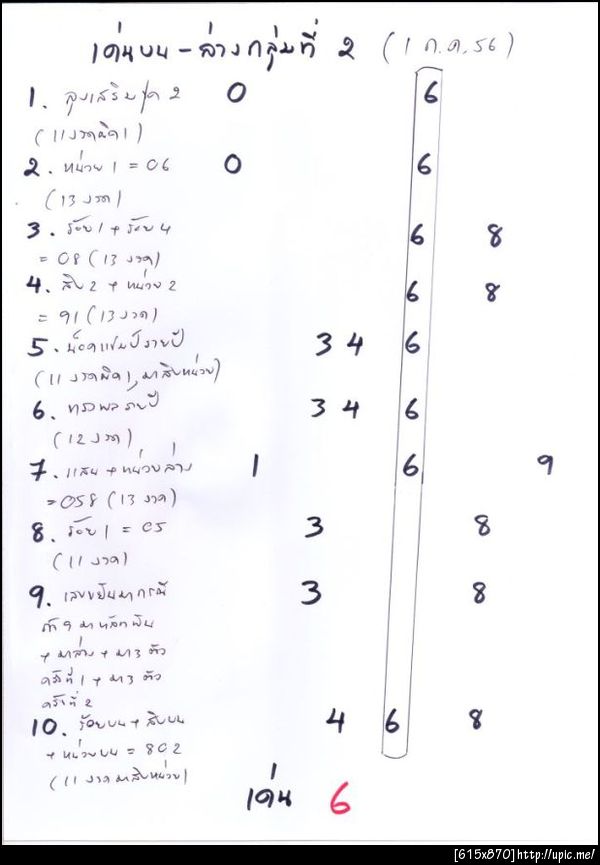 เด่นบน - ล่างกลุ่มที่ 2 (1 ก.ค. 56)
1. ลุงเสริม ชุด 2 0 6
(11 งวดผิด 1)
2. หน่วย 1 = 06 0 6
(13 งวด)
3. ร้อย 1 + ร้อย 4 6 8
= 08 (13 งวด)
4. สิบ 2 + หน่วย 2 6 8
= 91 (13 งวด)
5. น็อคแชมป์รายปี 3 4 6
(11 งวดผิด 1, มาสิบหน่วย)
6. รายปี 3 4 6
(12 งวด)
7. แสน + หน่วยล่าง 1 6 9
= 058 (13 งวด)
8. ร้อย 1 = 05 3 8
(11 งวด)
9. เลขขยันมากรณี 3 8
ถ้า 9 มาหลักพัน
+ มาล่าง + มา 3 ตัว
ครั้งที่ 1 + มา 3 ตัว
ครั้งที่ 2
10. ร้อยบน + สิบบน 4 6 8
+ หน่วยบน = 802
(11 งวด มาสิบหน่วย)
เด่น 6
[615x870]http://upic.me/